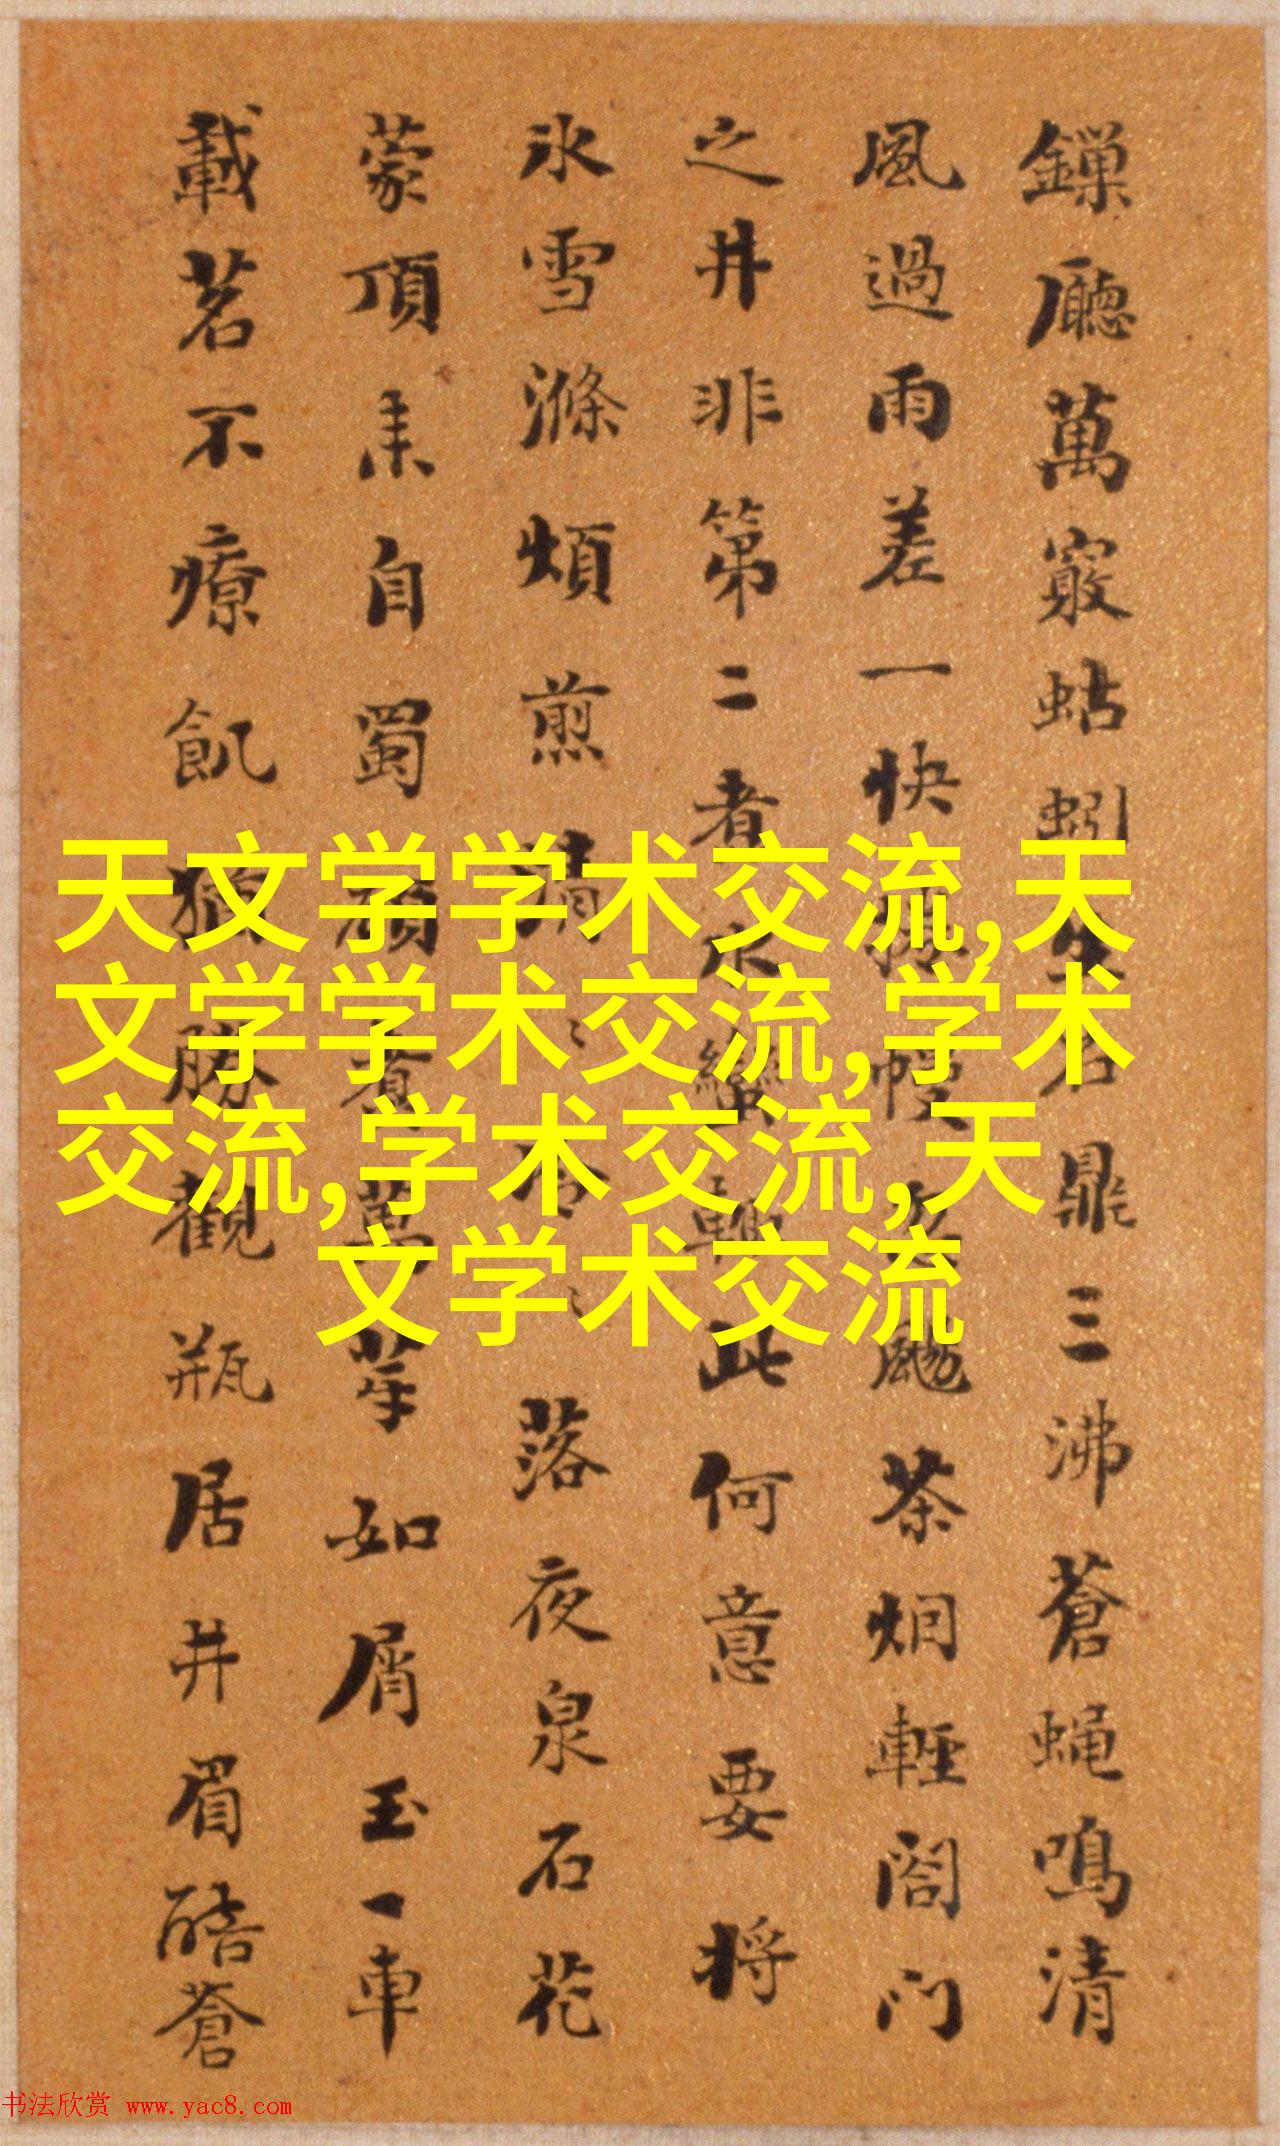 鏁廳萬竅蛞蚓生石鼎三沸蒼蝇鳴清
風過雨差一快颭茶烟輕閤门
之井非第二者水蠻轉此何意要将
氷雪滌煩煎落夜泉石花
蒙頂来自蜀萬芽如屑玉一車
載茗不療飢猶勝觀瓶居井眉酷蒼
天文学学术交流,天
文学学术交流,学术
交流,学术交流,天
文学术交流
书法欣赏 www.yac8.com